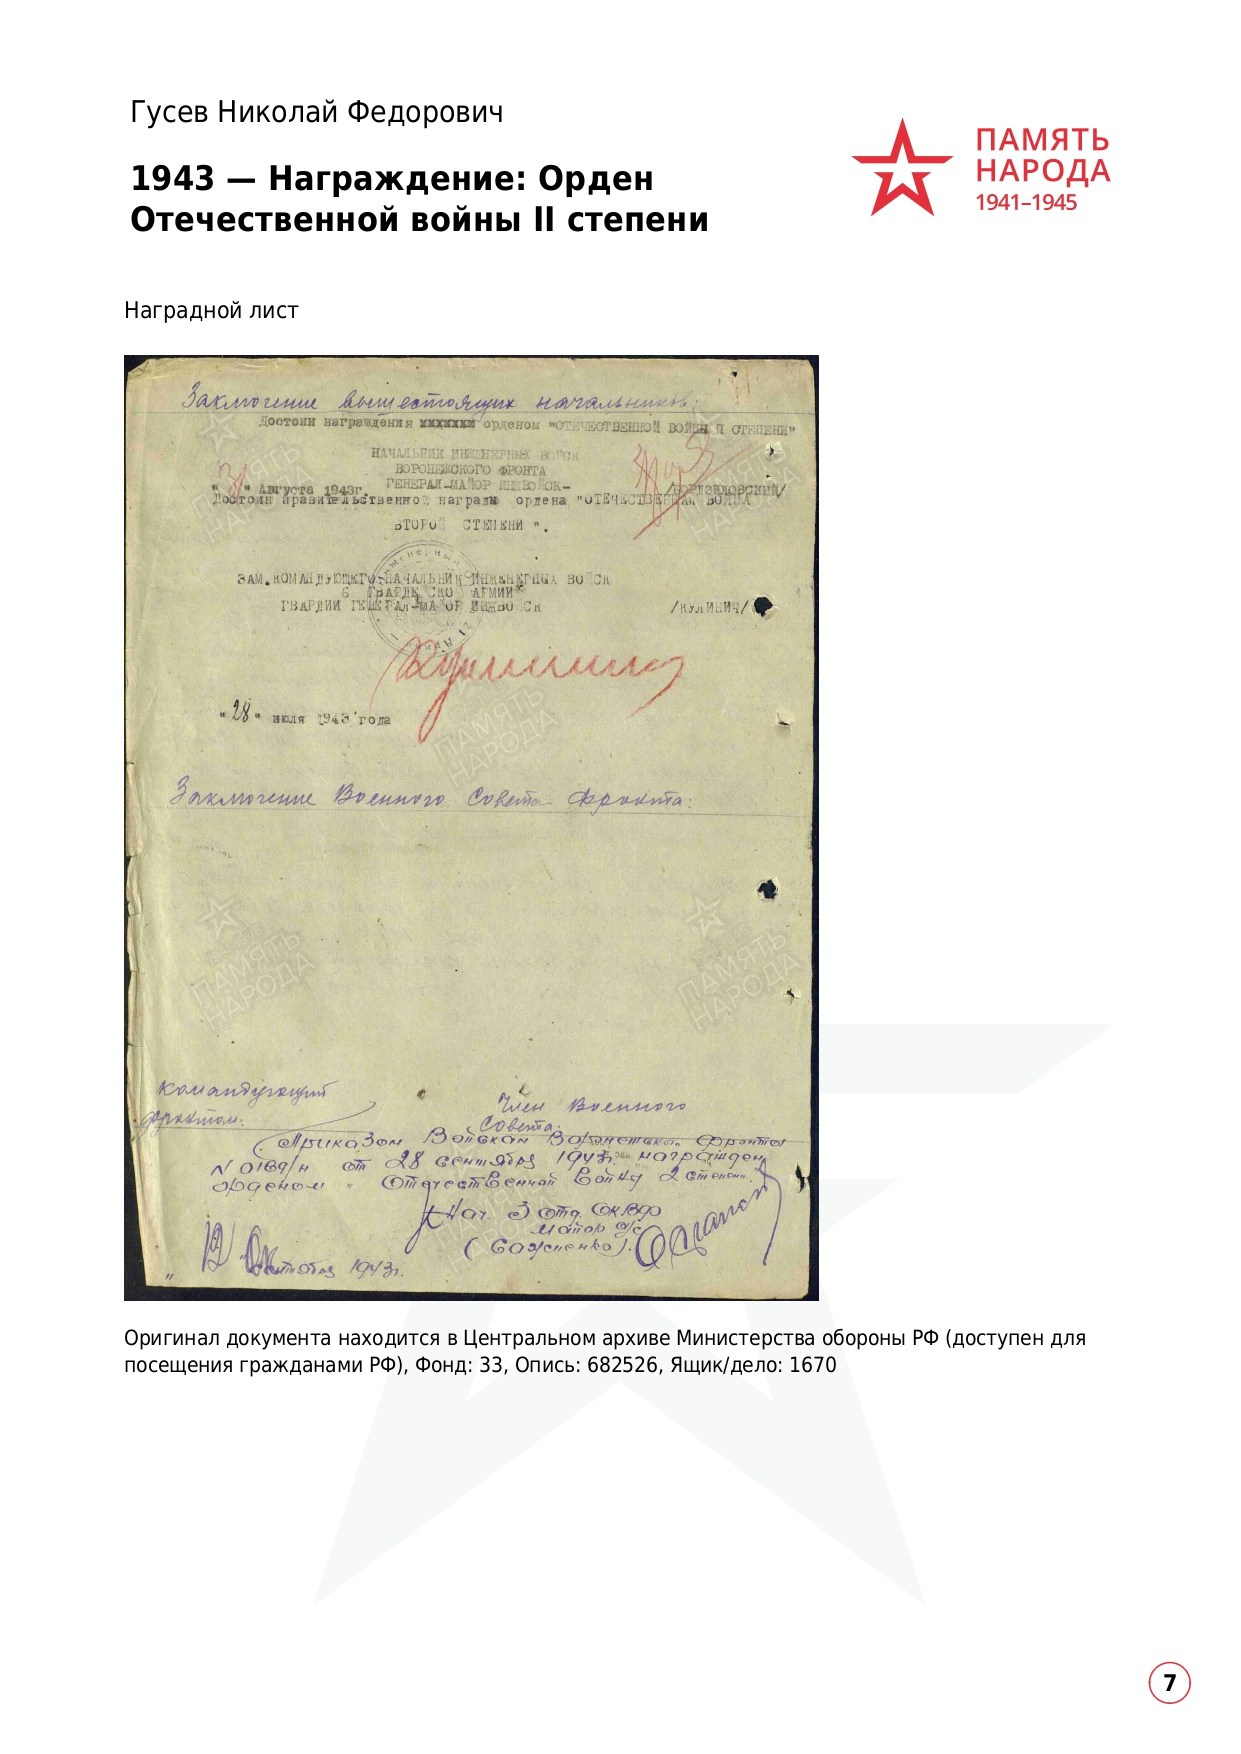 Гусев Николай Федорович
1943 — Награждение: Орден
Отечественной войны II степени
ПАМЯТЬ
НАРОДА
1941–1945
Наградной лист
Заключение вышестоящих начальников:
Достоин награждения орденом "ОТЕЧЕСТВЕННОЙ ВОЙНЫ П СТЕПЕНИ"
НАЧАЛЬНИК ИНЖЕНЕРНЫХ ВОЙСК
ВОРОНЕЖСКОГО ФРОНТА
"31" Августа 1943г. ГЕНЕРАЛ-МАЙОР ИНЖВОЙСК-
Достоин правительственной награды ордена "ОТЕЧЕСТВЕННАЯ ВОЙНА
ВТОРОЙ СТЕПЕНИ ".
ЗАМ.КОМАНДУЮЩЕГО-НАЧАЛЬНИК ИНЖЕНЕРНЫХ ВОЙСК
6 ГВАРДЕЙСКОЙ АРМИИ
ГВАРДИИ ГЕНЕРАЛ-МАЙОР ИНЖВОЙСК /КУЛИНИЧ/
"28" июля 1943 года
ПАМЯТЬ
НАРОДА
Заключение Военного Совета Фронта:
ПАМЯТЬ
НАРОДА
ПАМЯТЬ
НАРОДА
Командующий
фронтом:
Член Военного
Совета:
Приказом Войскам Воронежского Фронта
N 0169/н от 28 сентября 1943г. награжден
орденом "Отечественной Войны 2 степени".
Нач. 3 отд. ОКВФ
майор а/с
(Саженко).
" 1943г.
Оригинал документа находится в Центральном архиве Министерства обороны РФ (доступен для
посещения гражданами РФ), Фонд: 33, Опись: 682526, Ящик/дело: 1670
7